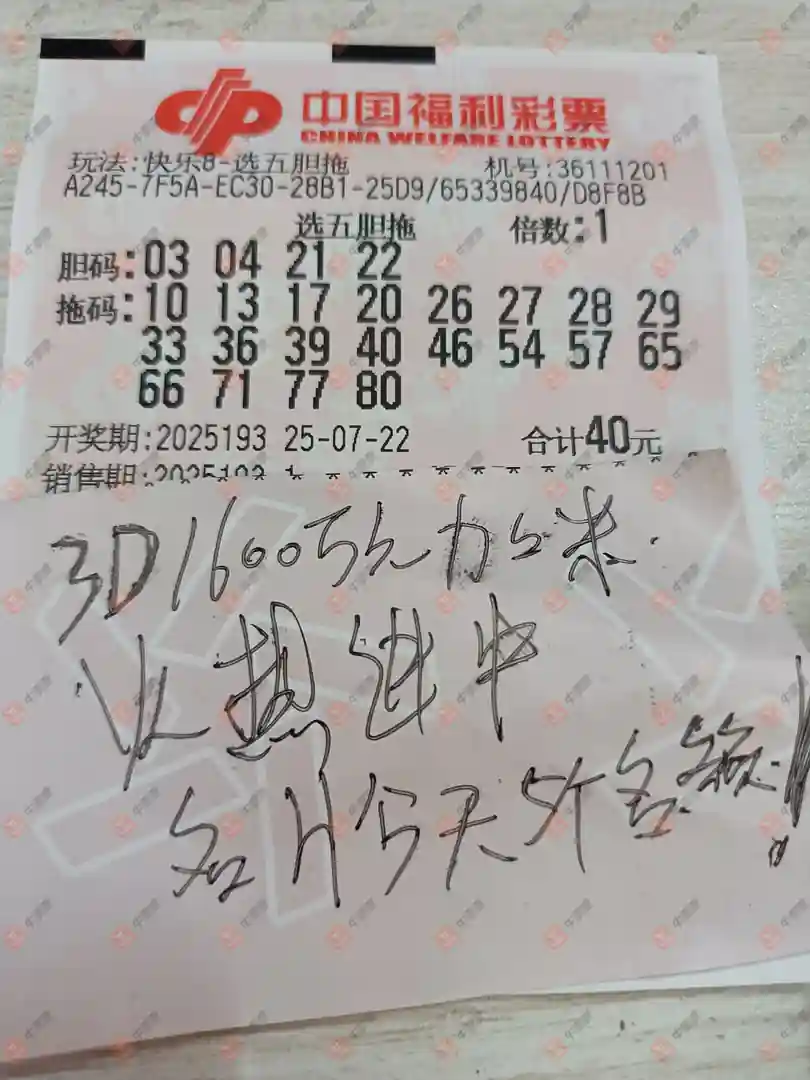 中国福利彩票
CHINA WELFARE LOTTERY
玩法:快乐8-选五胆拖 机号:36111201
A245-7F5A-EC30-28B1-25D9/65339840/D8F8B
选五胆拖 倍数:1
胆码:03 04 21 22
拖码:10 13 17 20 26 27 28 29
33 36 39 40 46 54 57 65
66 71 77 80
开奖期:2025193 25-07-22 合计40元
销售期:2025193
3D1600万元加上米.
火热进中
名片今天5个名额!